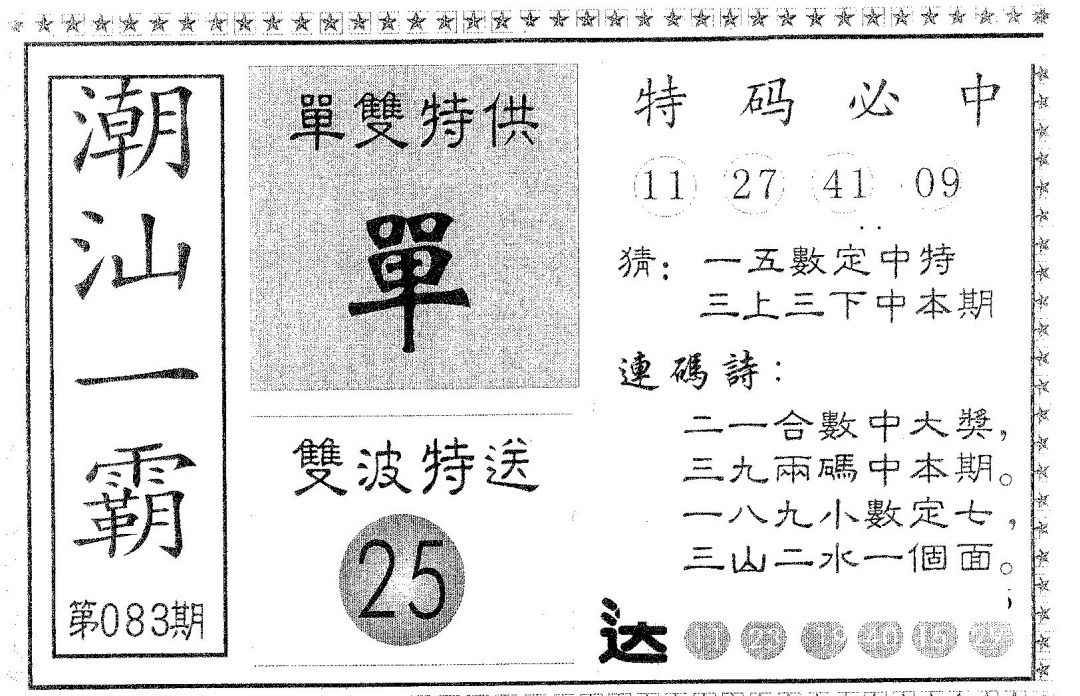 潮汕一霸
第083期
單雙特供
單
雙波特送
25
特码必中
11 27 41 09
猜：一五數定中特
三上三下中本期
連碼詩：
二一合數中大獎，
三九兩碼中本期。
一八九小數定七，
三山二水一個面。
送 11 23 19 40 15